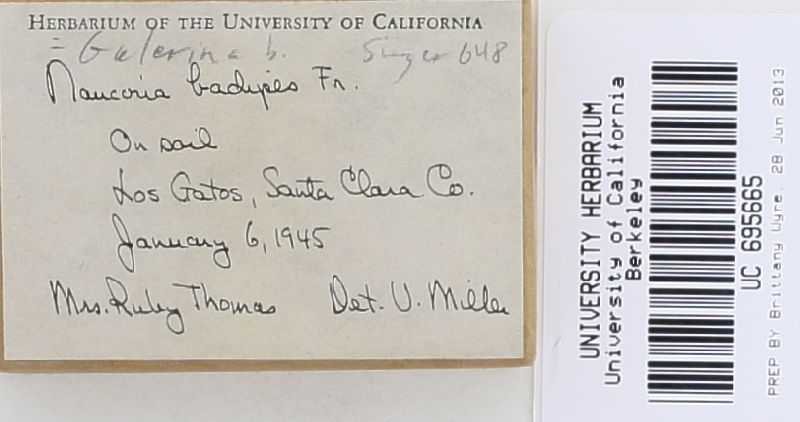 HERBARIUM OF THE UNIVERSITY OF CALIFORNIA
= Galerina b. Singer 648
Naucoria badipes Fr.
On soil
Los Gatos, Santa Clara Co.
January 6, 1945
Mrs. Ruby Thomas Det. V. Miller
UNIVERSITY HERBARIUM
University of California
Berkeley
UC 695665
PREP BY Brittany Wyre, 28 Jun 2013